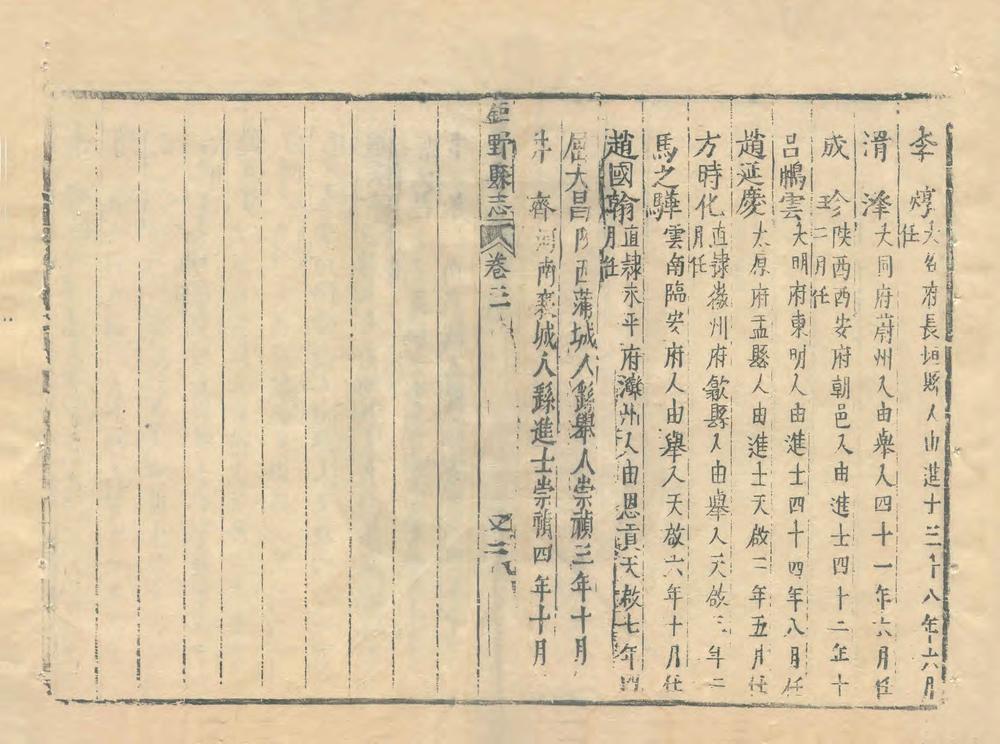 李　焞大名府長垣縣人由進士三十八年六月任
渭　澤大同府蔚州人由舉人四十一年六月任
成　珍陝西西安府朝邑人由進士四十二年十二月任
呂鵬雲大明府東明人由進士四十四年八月任
趙延慶太原府盂縣人由進士天啟二年五月任
方時化直隸徽州府歙縣人由舉人天啟三年二月任
馬之驊雲南臨安府人由舉人天啟六年十月任
趙國翰直隸永平府灤州人由恩貢天啟七年 月任
屈大昌陝西蒲城人繇舉人崇禎三年十月
齊河南襄城人繇進士崇禎四年十月
鉅野縣志
卷三
又二八